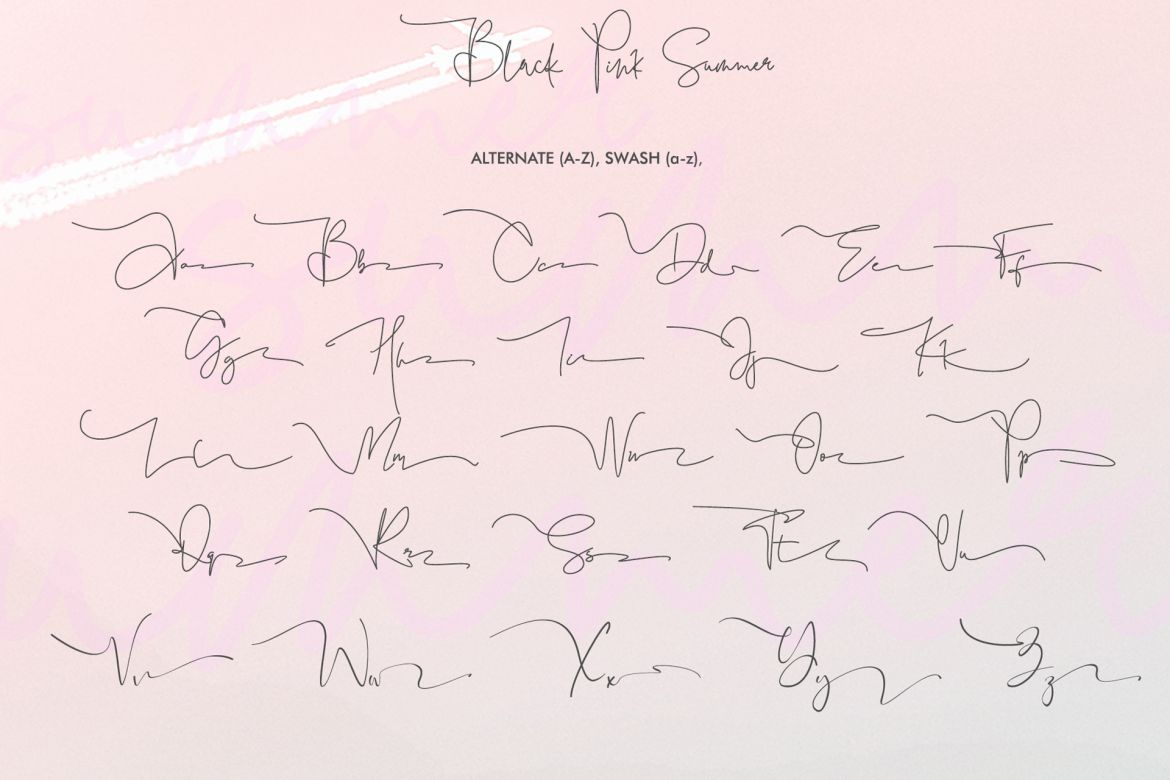 Black Pink Summer
ALTERNATE (A-Z), SWASH (a-z),
Aa Bb Cc Dd Ee Ff
Gg Hh Ii Jj Kk
Ll Mm Nn Oo Pp
Qq Rr Ss Tt Uu
Vv Ww Xx Yy Zz